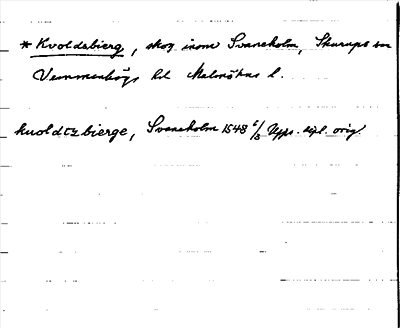 * Kvoldsbierg, skog inom Svaneholm, Skurups sn
Vemmenhögs hd Malmöhus l.
kuoldtzbierge, Svaneholm 1548 6/3 Upps. dipl. orig.